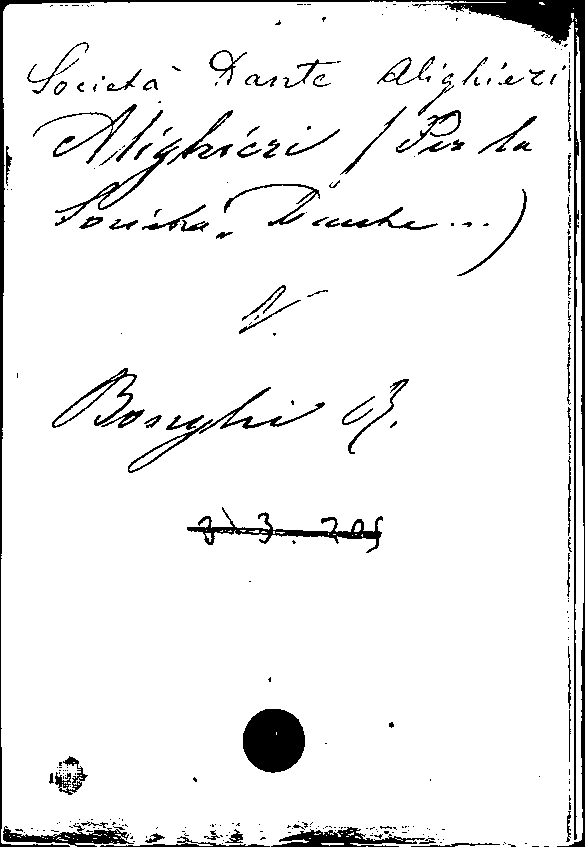 Società Dante Alighieri
Alighieri (Per la
Società Dante...)
V.
Bonghi R.
3 3. 205